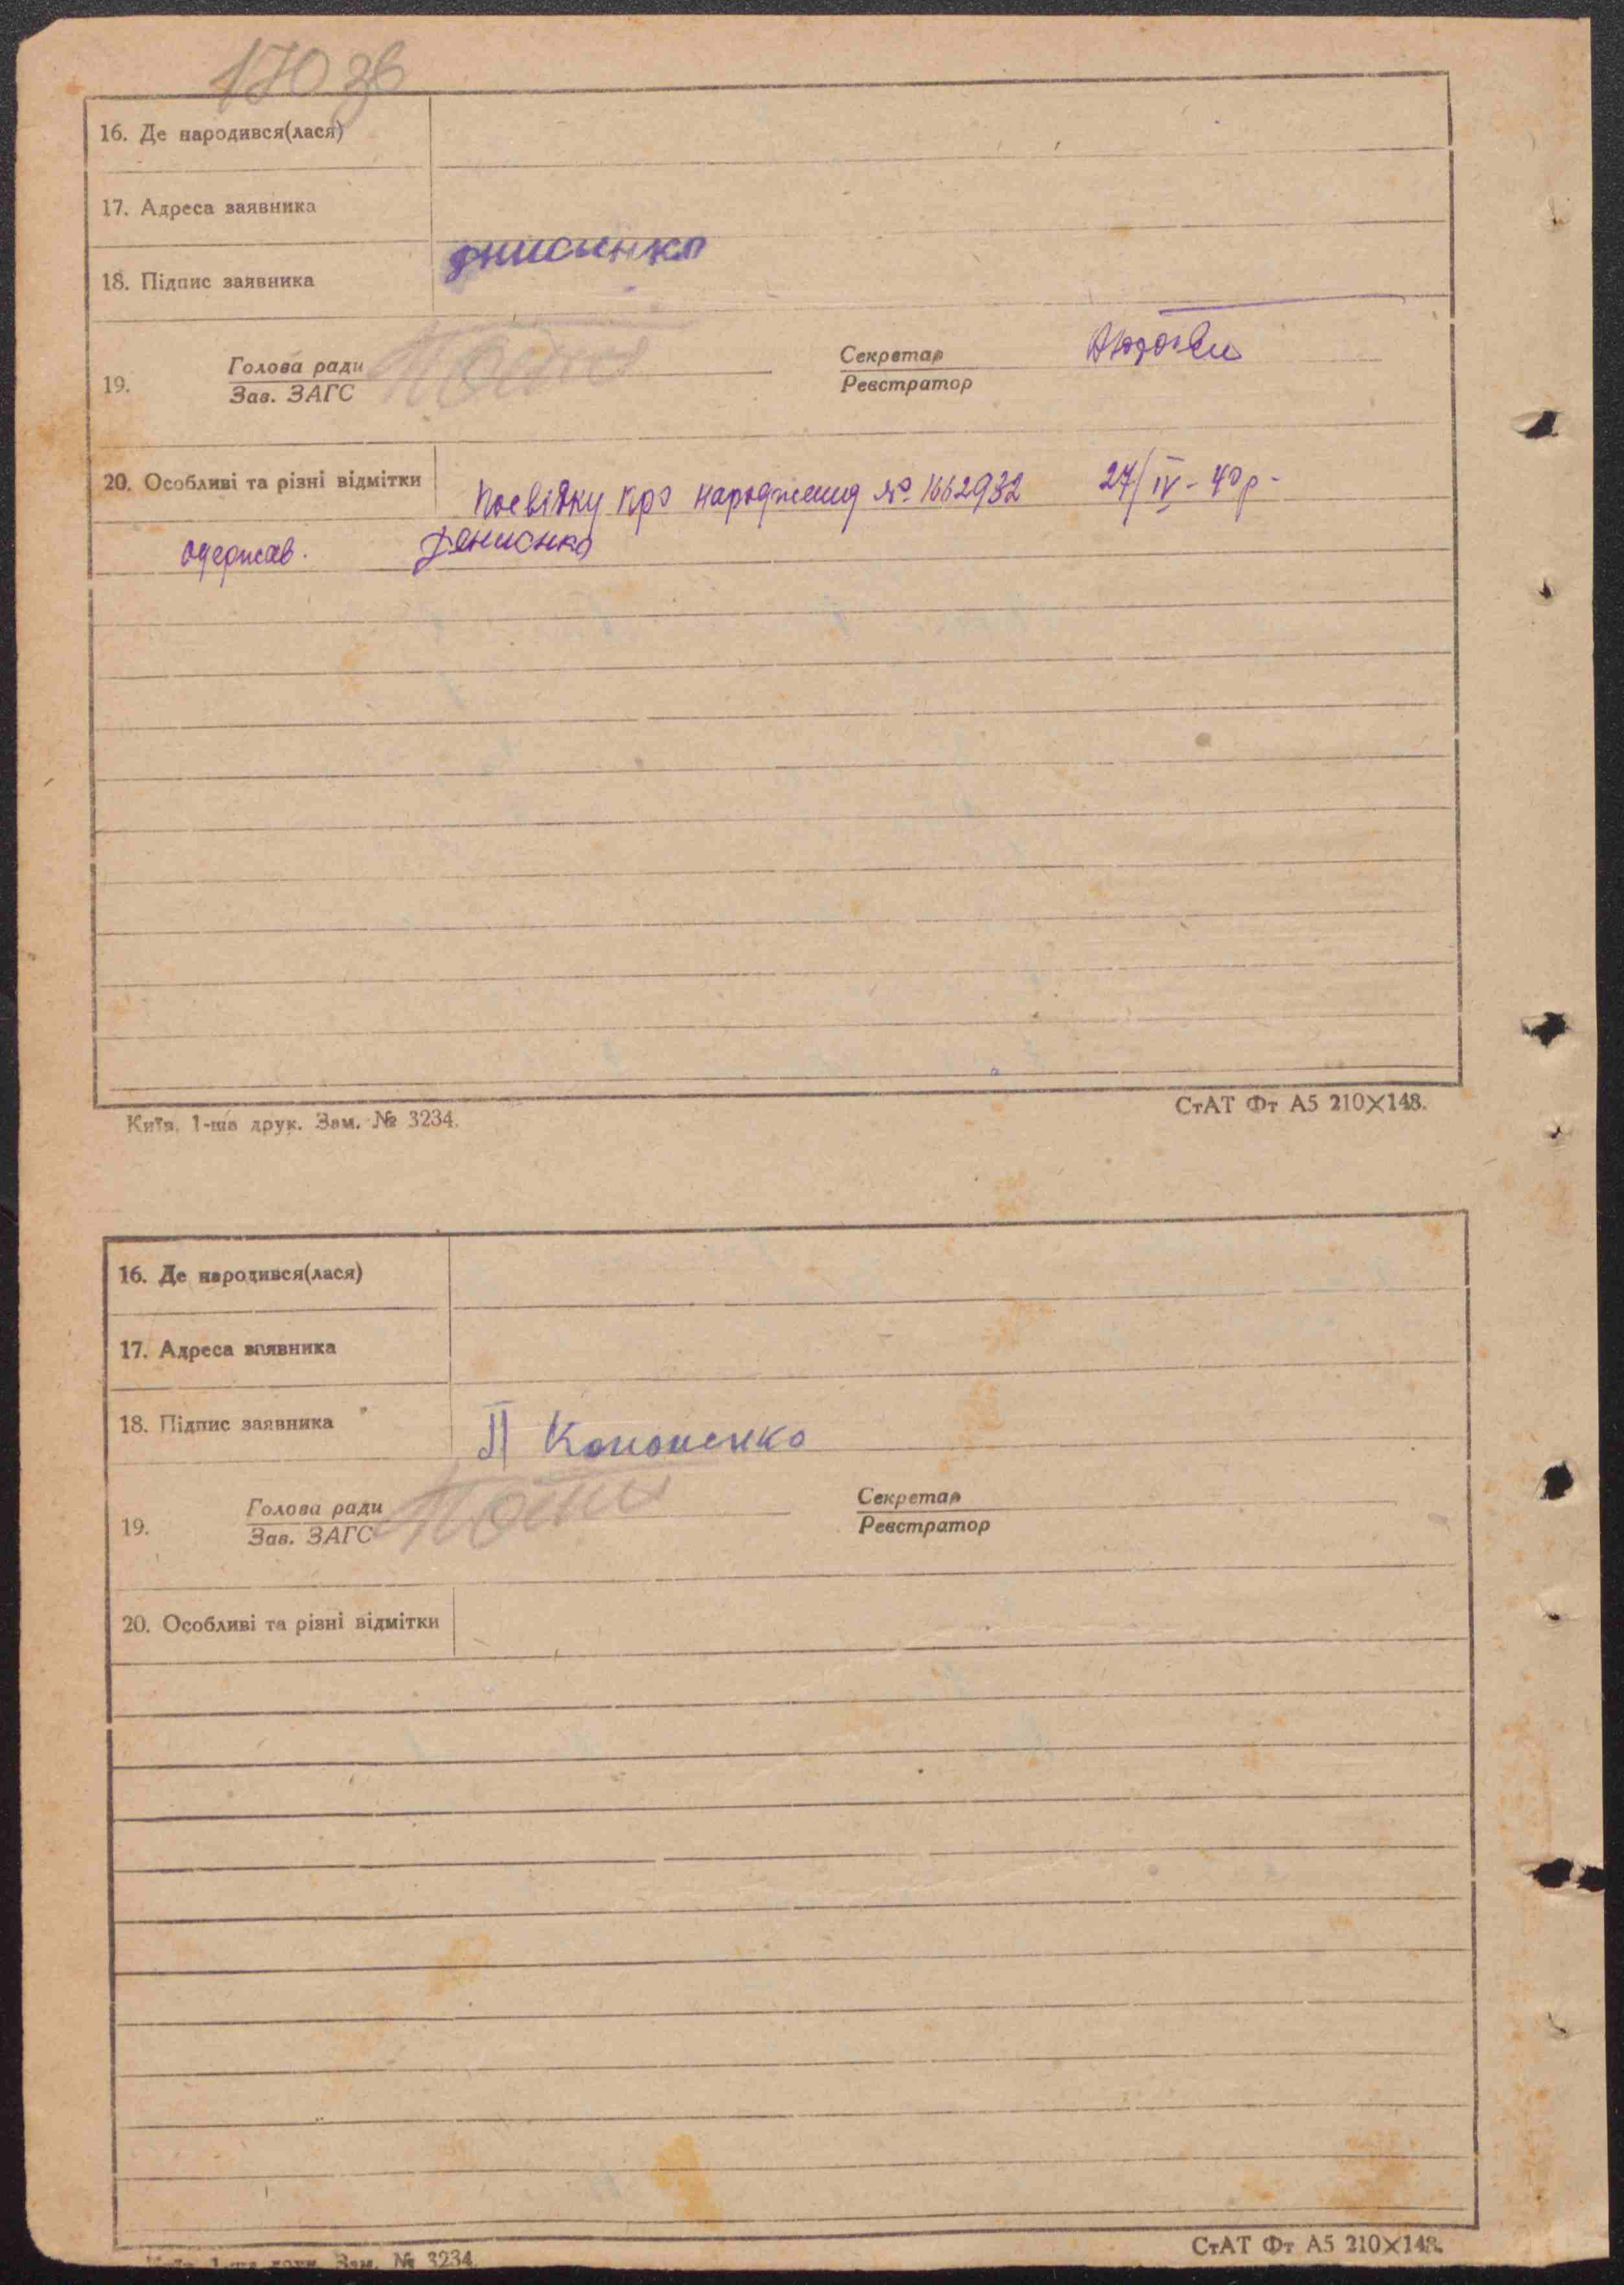 170 зв
16. Де народився(лася)
17. Адреса заявника
18. Підпис заявника
19. Голова ради Секретар
Зав. ЗАГС Реєстратор
20. Особливі та різні відмітки Посвідку про народження № 1662932 27/IV - 40 р -
одержав. Денисенко
Київ, 1-ша друк. Зам. № 3234. СтАТ Фт А5 210×148.
16. Де народився(лася)
17. Адреса заявника
18. Підпис заявника П Кононенко
19. Голова ради Секретар
Зав. ЗАГС Реєстратор
20. Особливі та різні відмітки
Київ, 1-ша друк. Зам. № 3234. СтАТ Фт А5 210×148.